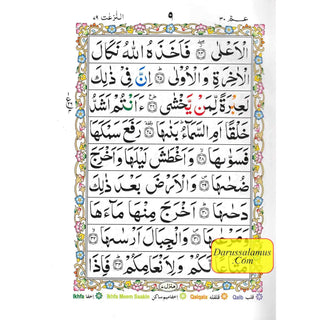 عـمّ ٣٠ ٥ النّٰزعٰت ٧٩
الْاَعْلٰى ۖ فَاَخَذَهُ اللّٰهُ نَكَالَ
الْاٰخِرَةِ وَالْاُوْلٰى ۗ اِنَّ فِیْ ذٰلِكَ
لَعِبْرَةً لِّمَنْ یَّخْشٰى ۗ ءَاَنْتُمْ اَشَدُّ
خَلْقًا اَمِ السَّمَآءُ ؕ بَنٰىهَا ۥ رَفَعَ سَمْكَهَا
فَسَوّٰىهَا ۙ وَاَغْطَشَ لَیْلَهَا وَاَخْرَجَ
ضُحٰىهَا ۪ وَالْاَرْضَ بَعْدَ ذٰلِكَ
دَحٰىهَا ؕ اَخْرَجَ مِنْهَا مَآءَهَا
وَمَرْعٰىهَا ۪ وَالْجِبَالَ اَرْسٰىهَا ۙ
مَتَاعًا لَّكُمْ وَلِاَنْعَامِكُمْ ؕ فَاِذَا
Darussalamus
.Com
Ikhfa اخفا Ikhfa Meem Saakin اخفا میم ساکن Qalqala قلقلہ Qalb قلب